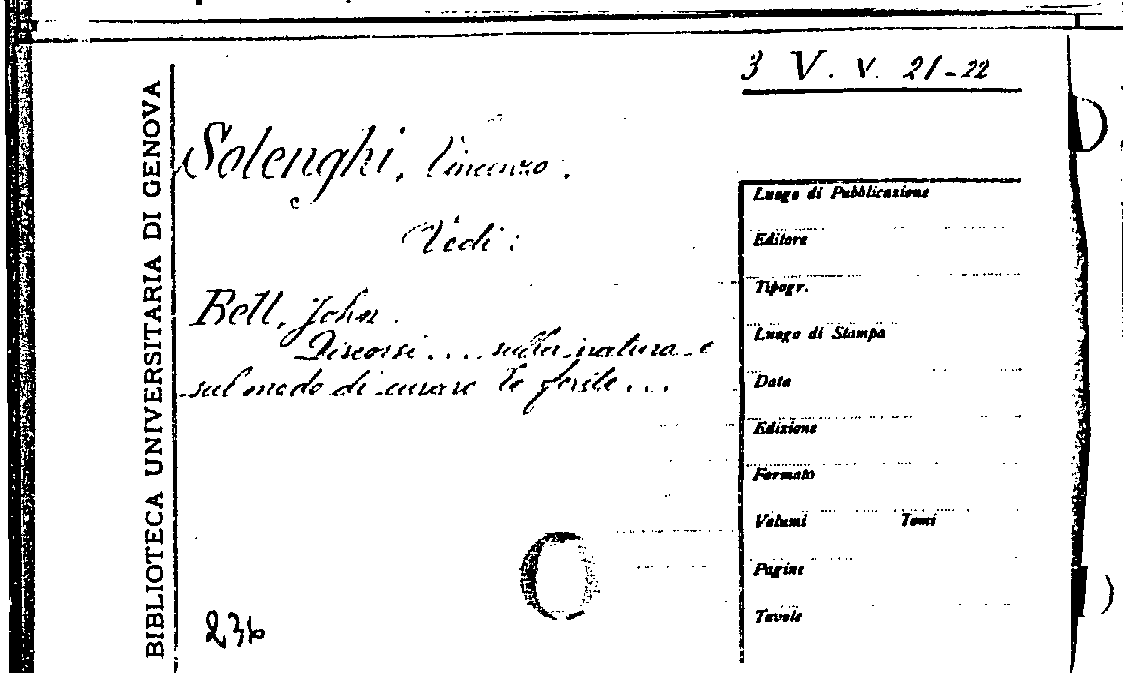 3 V. V. 21-22
BIBLIOTECA UNIVERSITARIA DI GENOVA
Solenghi, Vincenzo.
Vedi:
Bell, John.
Discorsi.... sulla natura e
sul modo di curare le ferite...
236
Luogo di Pubblicazione
Editore
Tipogr.
Luogo di Stampa
Data
Edizione
Formato
Volumi Tomi
Pagine
Tavole